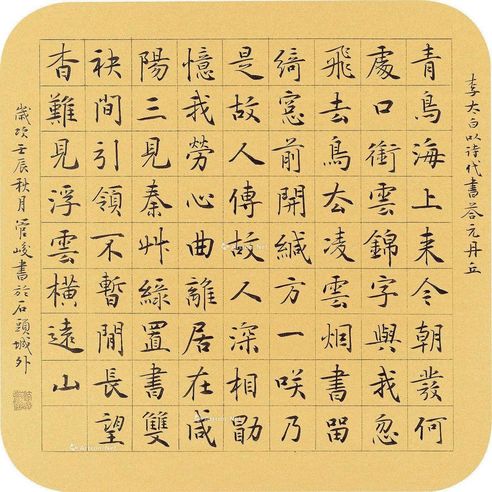 李太白以诗代書荅元丹丘
青鳥海上来今朝發何
處口銜雲錦字與我忽
飛去鳥厺凌雲烟書留
綺窓前開緘方一咲乃
是故人傳故人深相勖
憶我勞心曲離居在咸
陽三見秦艸緑置書雙
袂間引領不暫閒長望
杳難見浮雲横遠山
歲次壬辰秋月管峻書於石頭城外